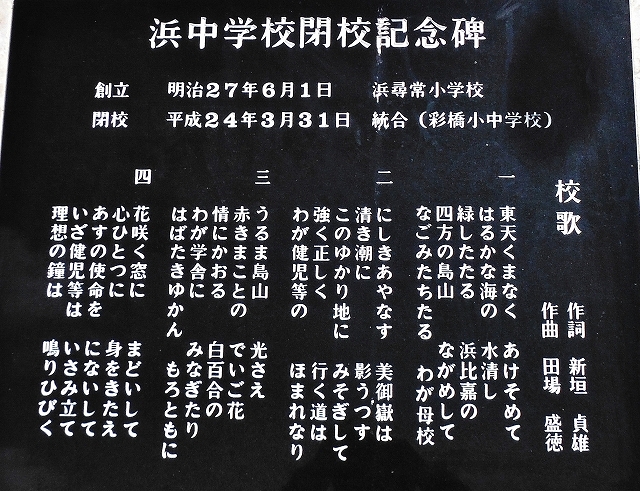 浜中学校閉校記念碑
創立 明治27年6月1日 浜尋常小学校
閉校 平成24年3月31日 統合(彩橋小中学校)
校歌
作詞 新垣 貞雄
作曲 田場 盛徳
一
東天くまなく あけそめて
はるかな海の 水清し
緑したたる 浜比嘉の
四方の島山 ながめして
なごみたちたる わが母校
二
にしきあやなす 美御嶽は
清き潮に 影うつす
このゆかり地に みそぎして
強く正しく 行く道は
わが健児等の ほまれなり
三
うるま島山 光さえ
赤きまことの でいご花
情にかおる 白百合の
わが学舎に みなぎたり
はばたきゆかん もろともに
四
花咲く窓に まどいして
心ひとつに 身をきたえ
あすの使命を にないして
いざ健児等は いさみ立て
理想の鐘は 鳴りひびく